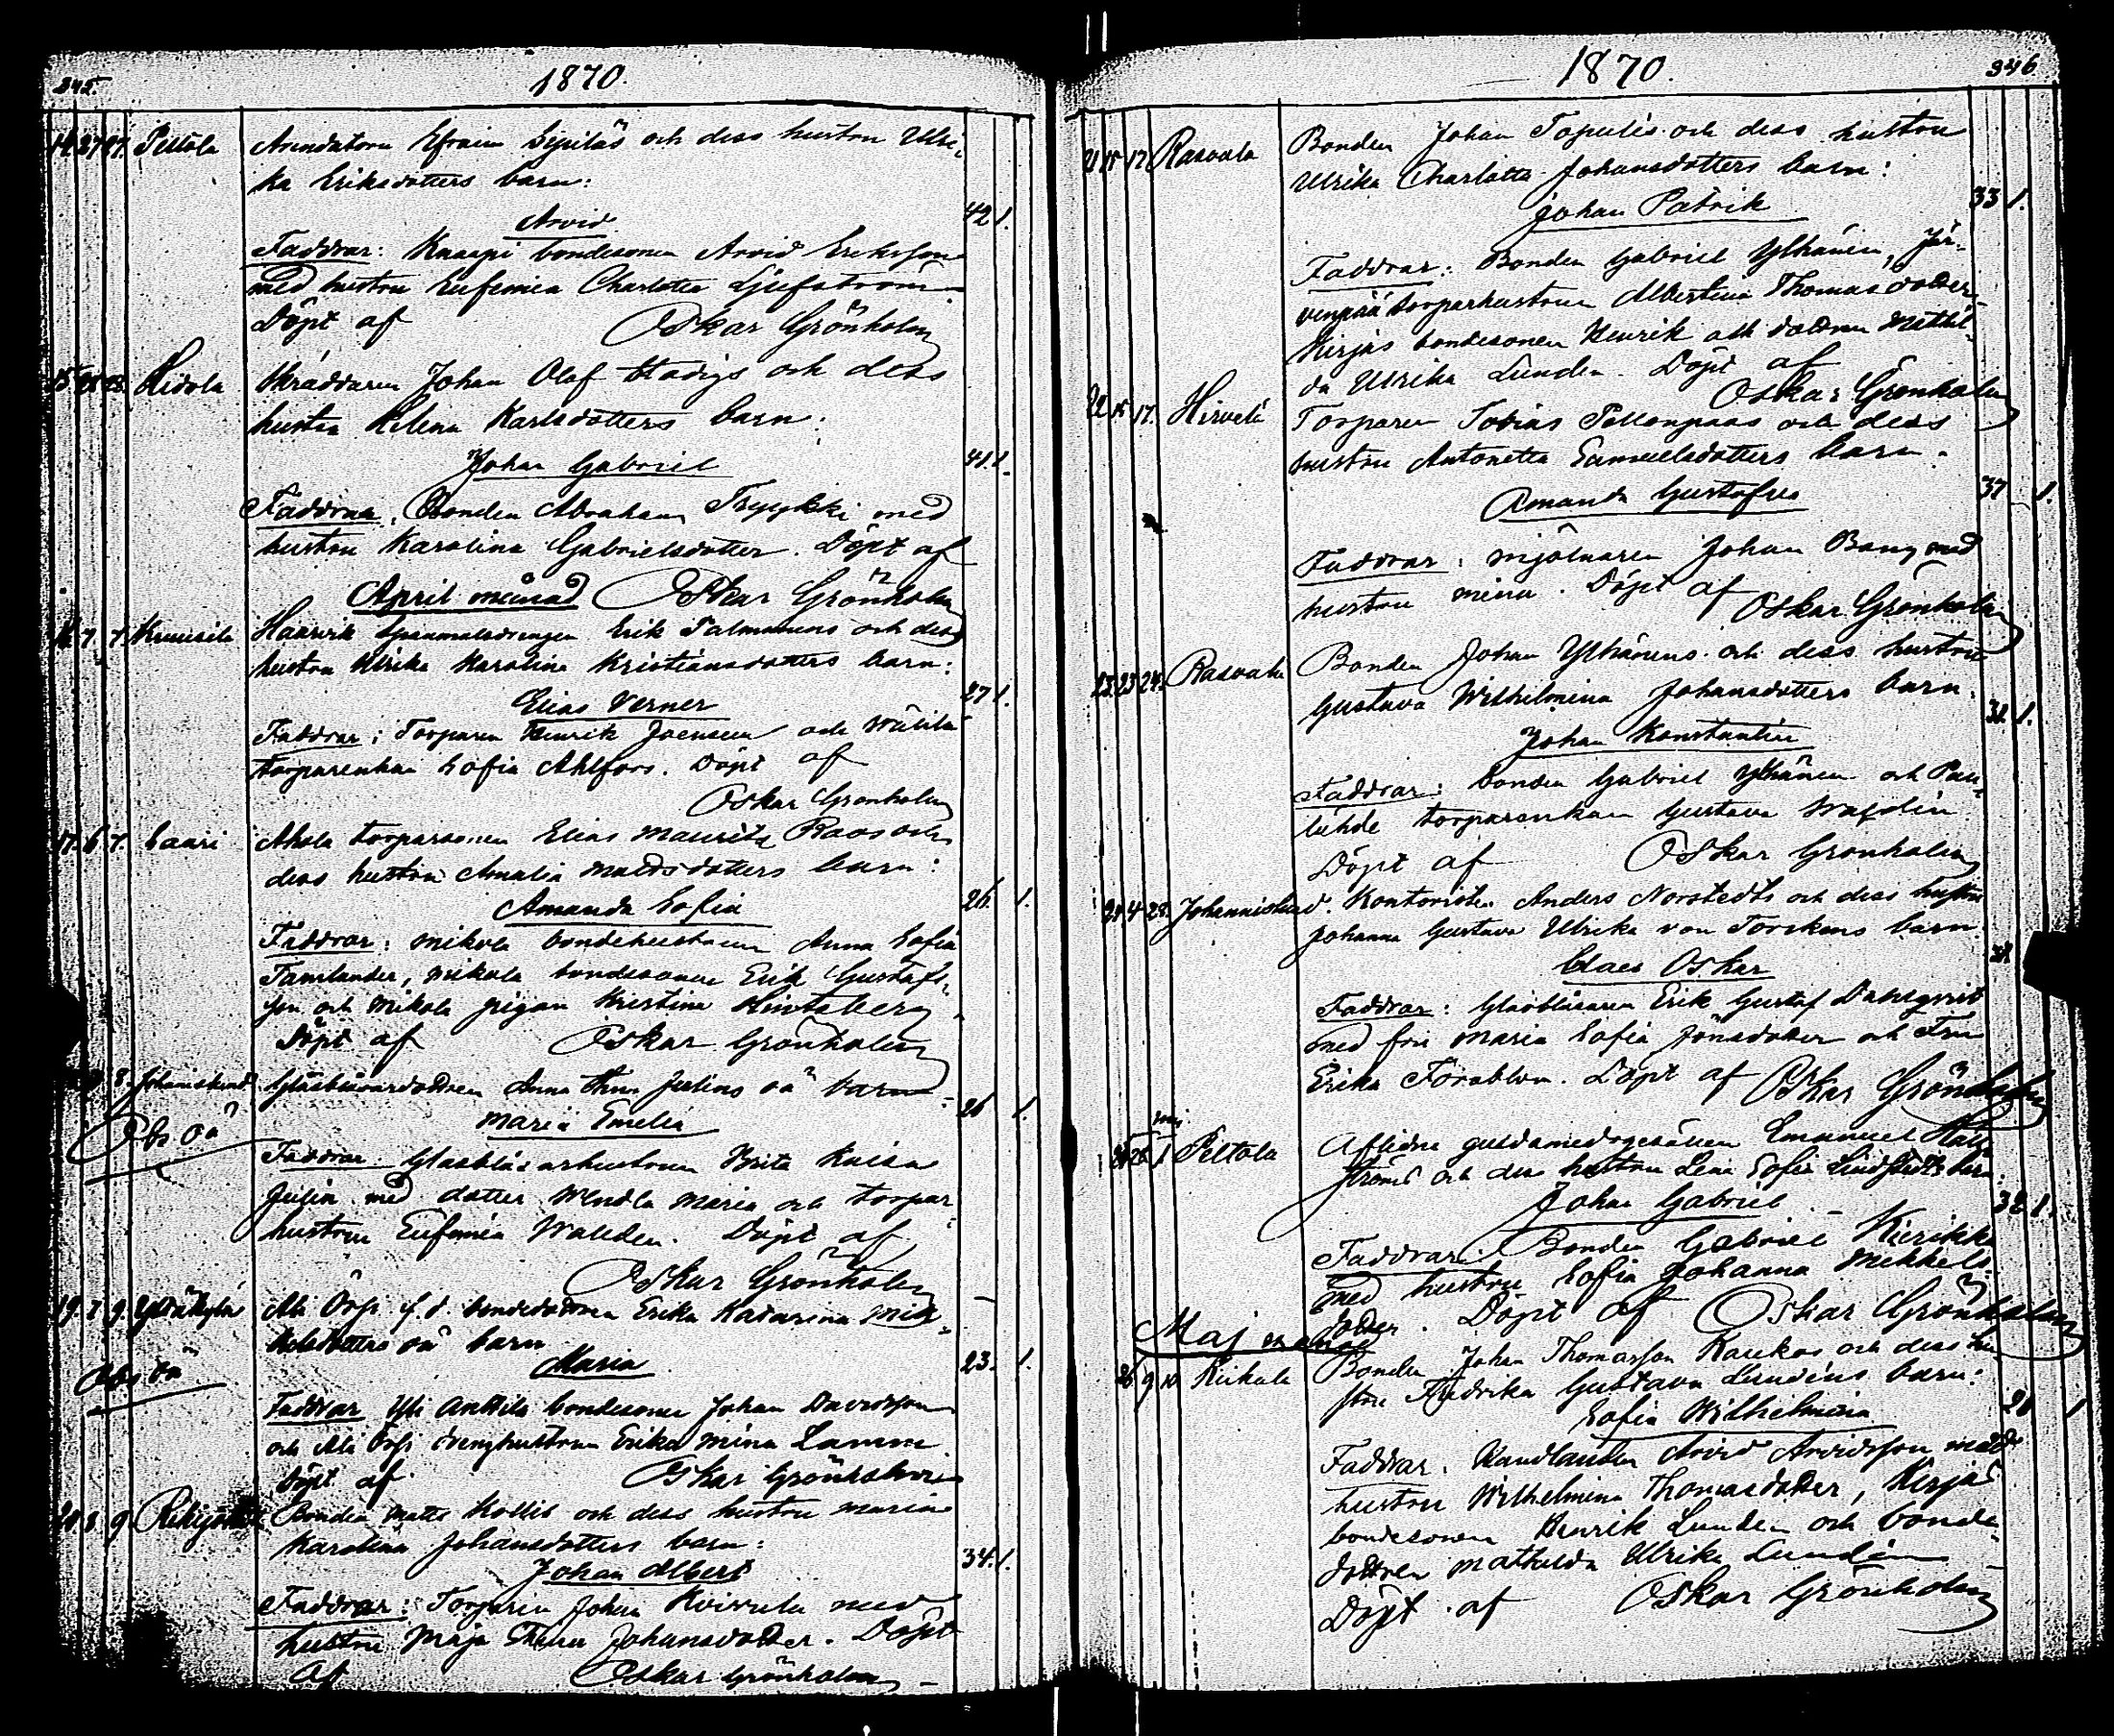 345.
1870.
14. 27 27. Peltola Arendatorn Efraim Sipiläs och dess hustru Ulri-
ka Eriksdotters barn:
Arvid 42 1.
Faddrar: Knaapi bondesonen Arvid Eriksson
med hustru Eufemia Charlotta
Döpt af Oskar Grönholm
15. Skräddaren Johan Olof och dess
hustru Helena Karlsdotters barn:
Johan Gabriel 41 1.
Faddrar. Bonden Abraham Tryykki med
hustru Karolina Gabrielsdotter. Döpt af
April månad Oskar Grönholm
16. 7. 7. Kruusila Erik och dess
hustru Ulrika Karolina Kristiansdotters barn:
Elias Verner 27 1.
Faddrar: Torparen Henrik Joensuu och
torparenkan Sofia Ahlfors. Döpt af
Oskar Grönholm
17. 6. 7. Saari Ahola torparsonen Elias Mauritz Raos och
dess hustru Amalia Mattsdotters barn:
Amanda Sofia 26 1.
Faddrar: Mikola bondehustrun Anna Sofia
Tamlander, Mikola bondesonen Erik Gustafs-
son och Mikola pigan Kristina Hintsberg
Döpt af Oskar Grönholm
8. Johannislund Glasblåsardottren Anna Julins oä barn
Maria Emelia 26 1.
Obs oä
Faddrar. Glasblåsarhustrun Brita Kaisa
Julin med dotter Wendla Maria och torpar-
hustrun Eufemia Wallden. Döpt af
Oskar Grönholm
19. 7. 9. Yltäkylä Ali f.d. bondedottren Erika Katarina Mik-
kelsdotters oä barn
Maria 23. 1.
Obs oä
Faddrar Yli Anttila bondesonen Johan Davidsson
och Ali dränghustrun Erika Mina Lamm.
Döpt af Oskar Grönholm
20. 8. 9. Rekijoki Bonden Matts Kollis och dess hustru Maria
Karolina Johansdotters barn:
Johan Albert 34. 1.
Faddrar: Torparen Johan med
hustru Maja Johansdotter. Döpt
af Oskar Grönholm
1870.
346
21 15 17. Rasvala Bonden Johan och dess hustru
Ulrika Charlotta Johansdotters barn:
Johan Patrik 33 1.
Faddrar: Bonden Gabriel Ylhäinen, Jär-
venpää torparhustrun Albertina Thomasdotter,
Kirjas bondesonen Henrik och dottren Mathil-
da Ulrika Lunden. Döpt af
Oskar Grönholm
22 15 17. Hirvelä Torparen Tobias Pellonpääs och dess
hustru Antonetta Samuelsdotters barn.
Amanda Gustafva 37 1.
Faddrar: mjölnaren Johan Bang med
hustru Mina. Döpt af Oskar Grönholm
23. 23 24. Rasvala Bonden Johan Ylhäinens och dess hustru
Gustava Wilhelmina Johansdotters barn.
Johan Konstantin 32 1.
Faddrar: bonden Gabriel Ylhäinen och
torparenkan Gustava
Döpt af Oskar Grönholm
24 4 28. Johannislund. Kontoristen Anders Norstedts och dess hustru
Johanna Gustava Ulrika von Torckens barn
Claes Oskar
Faddrar: Glasblåsaren Erik Gustaf Dahlqvist
med fru Maria Sofia Jönsdotter och Fru
Erika Forsblom. Döpt af Oskar Grönholm
25 maj 1 Peltola Aflidne guldsmedsgesällen Emanuel Häll-
ströms och dess hustru Lena Sofia Lindstedts barn:
Johan Gabriel 32 1.
Faddrar: Bonden Gabriel Kierikka
med hustru Sofia Johanna Mikkels-
dotter. Döpt af Oskar Grönholm
Maj månad
26 9 10 Kiikala Bonden Johan Thomasson Kaukos och dess hu-
stru Fredrika Gustava Lundéns barn:
Sofia Wilhelmina 28 1
Faddrar. Handlanden Arvid Arvidsson med
hustru Wilhelmina Thomasdotter, Kirjas
bondesonen Henrik Lunden och bonde-
dottren Mathilda Ulrika Lundén
Döpt af Oskar Grönholm